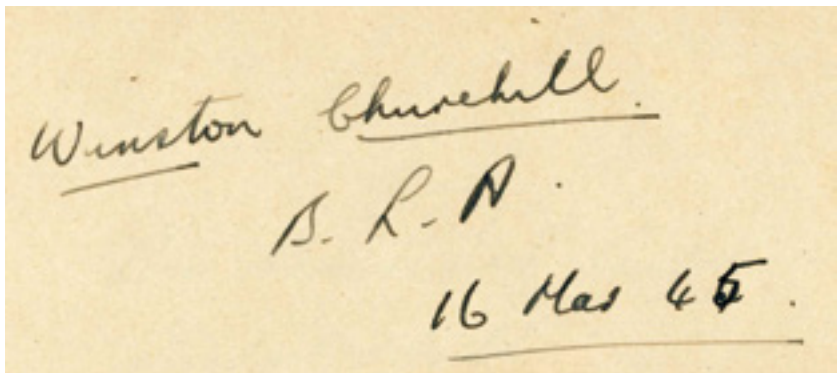 Winston Churchill.
B. L. A.
16 Mar 45.